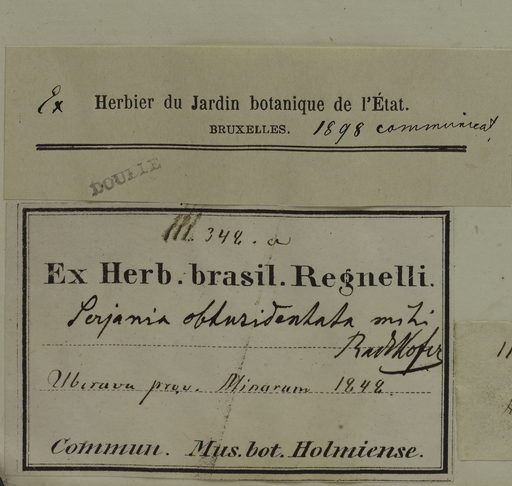 Ex Herbier du Jardin botanique de l'État.
BRUXELLES. 1898 communicat,
DOUBLE
III. 342. a
Ex Herb. brasil. Regnelli.
Serjania obtusidentata mihi
Radlkofer
Uberava prov. Minarum 1848
Commun. Mus. bot. Holmiense.